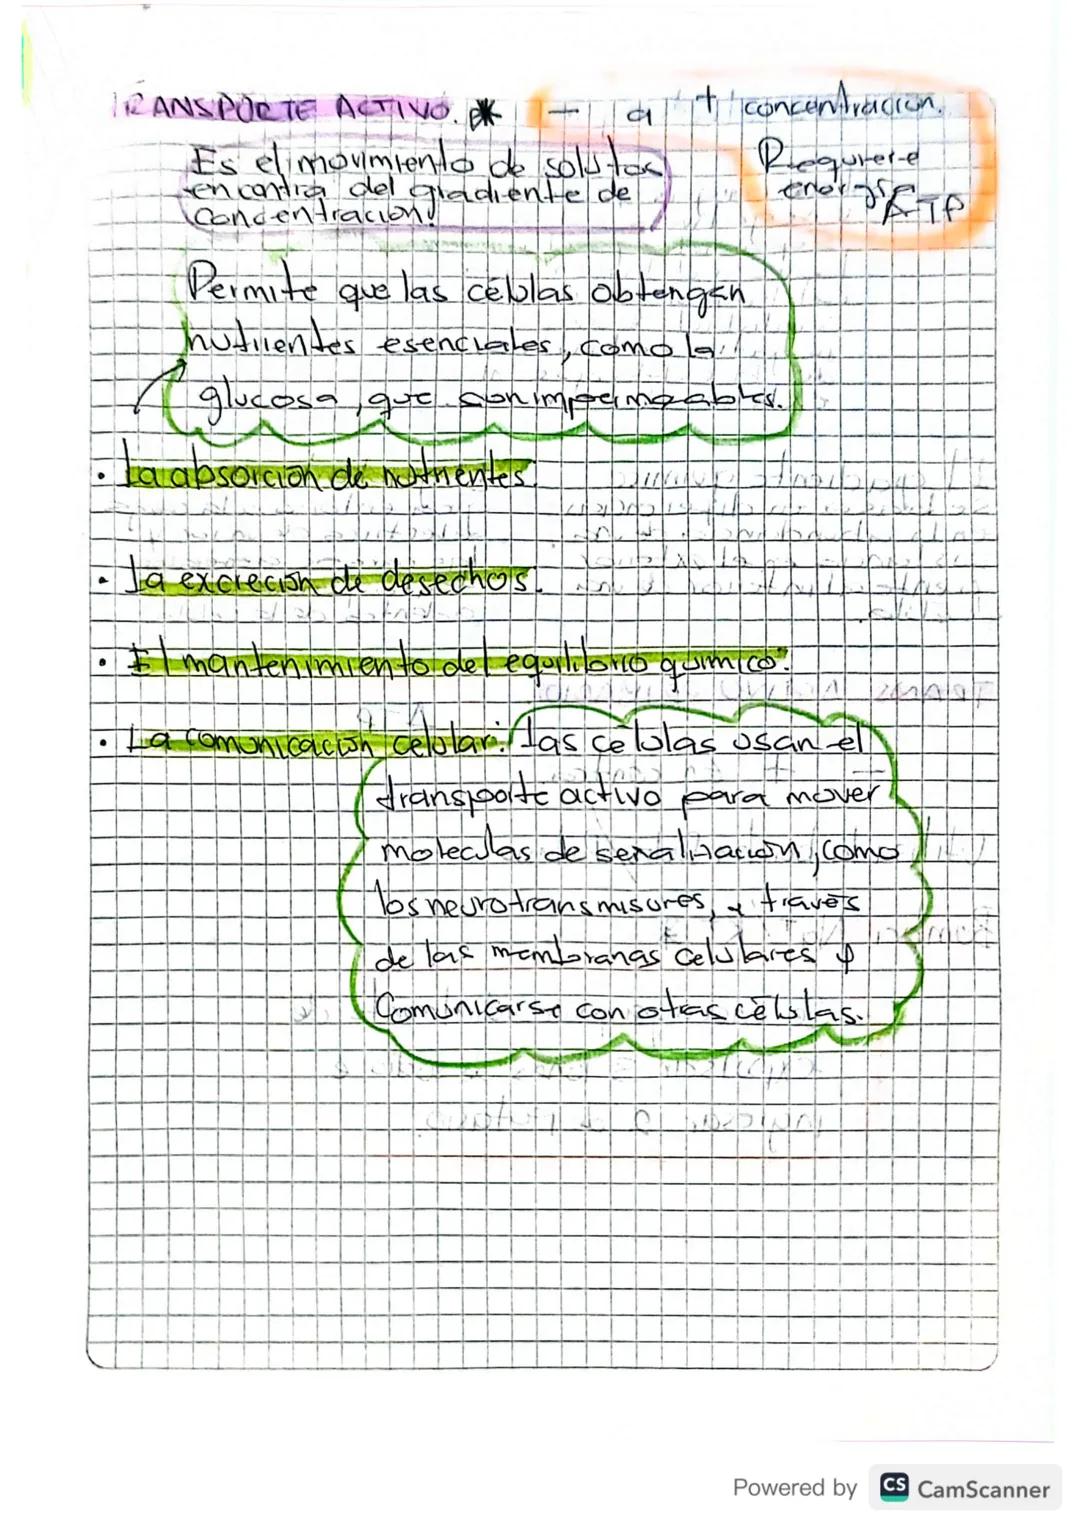 TRANSPORTE ACTIVO. * - a + concentración.
Requiere
energía
ATP
Es el movimiento de solutos
en contra del gradiente de
concentración.
Permite que las células obtengan
nutrientes esenciales, como la
glucosa, que son impermeables.
• La absorción de nutrientes.
• La excreción de desechos.
• El mantenimiento del equilibrio químico.
• La comunicación celular: Las células usan el
transporte activo para mover
moleculas de señalización, como
los neurotransmisores, a través
de las membranas celulares y
Comunicarse con otras células.
Powered by CS CamScanner